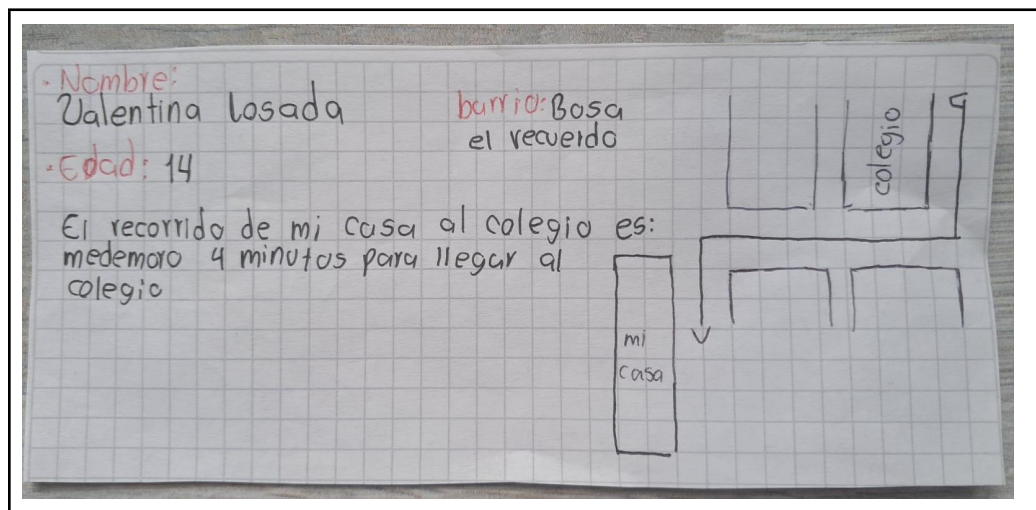 · Nombre:
Valentina Losada
barrio: Bosa
el recuerdo
· Edad: 14
El recorrido de mi casa al colegio es:
medemoro 4 minutos para llegar al
colegio
colegio
mi
casa